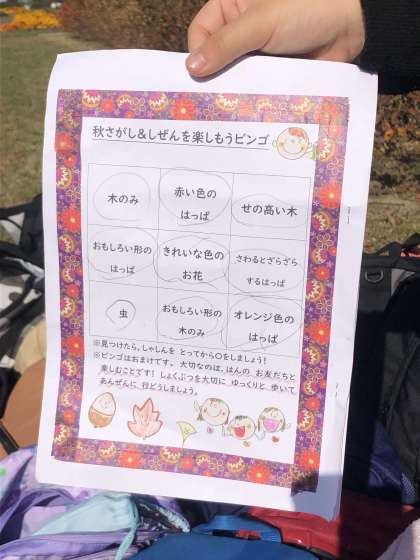 秋さがし&しぜんを楽しもうビンゴ
木のみ
赤い色の
はっぱ
せの高い木
おもしろい形の
はっぱ
きれいな色の
お花
さわるとざらざら
するはっぱ
虫
おもしろい形の
木のみ
オレンジ色の
はっぱ
※見つけたら、しゃしんを とってから○をしましょう!
※ビンゴはおまけです。大切なのは、はんの お友だちと
楽しむことです!しょくぶつを大切に ゆっくりと 歩いて
あんぜんに 行どうしましょう。